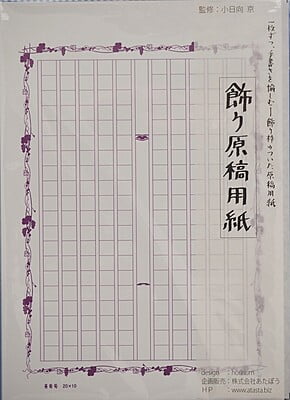 監修：小日向 京
一枚ずつ、手書きを愉しむ―飾り枠のついた原稿用紙
飾り原稿用紙
design
企画販売：株式会社あたぼう
HP : www.atasta.biz
長寿判 20×10